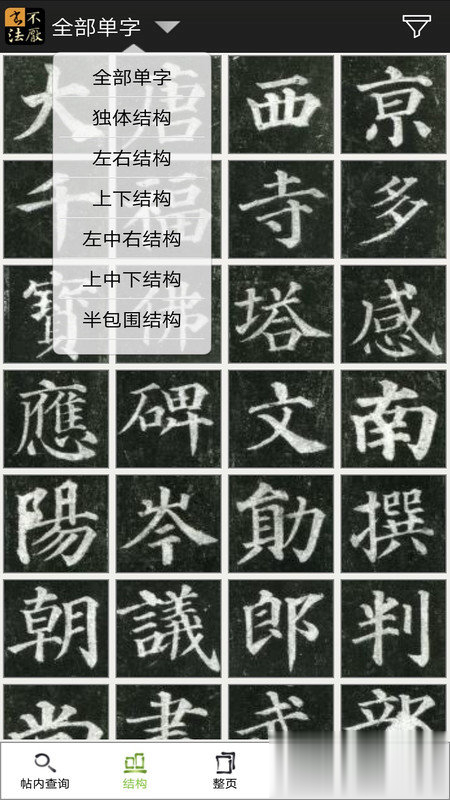 不厭
书法
全部单字
全部单字
独体结构
左右结构
上下结构
左中右结构
上中下结构
半包围结构
大 唐 西 亰
千 福 寺 多
寶 佛 塔 感
應 碑 文 南
陽 岑 勛 撰
朝 議 郎 判
尚 書 武 部
帖内查询
结构
整页